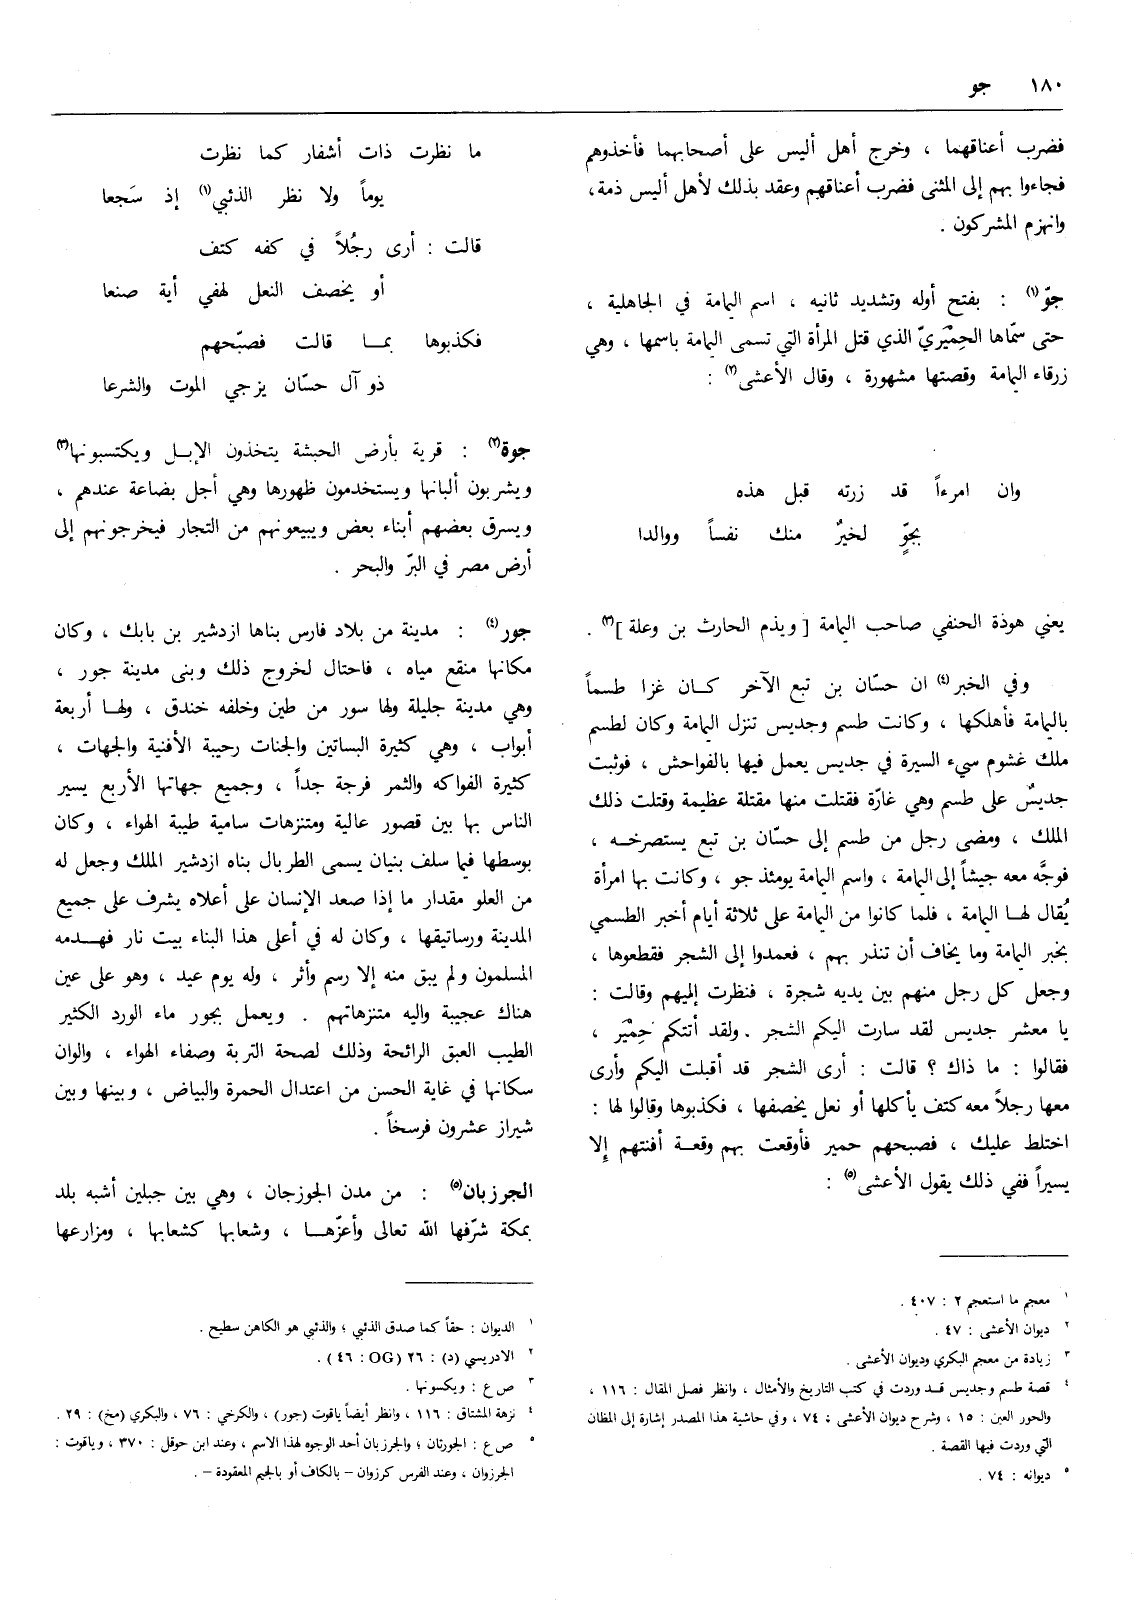 ١٨٠ جو
فضرب أعناقهما ، وخرج أهل أليس على أصحابهما فأخذوهم
فجاءوا بهم إلى المثنى فضرب أعناقهم وعقد بذلك لأهل أليس ذمة،
وانهزم المشركون .
جوّ(١) : بفتح أوله وتشديد ثانيه ، اسم اليمامة في الجاهلية ،
حتى سمّاها الحِمْيَريّ الذي قتل المرأة التي تسمى اليمامة باسمها ، وهي
زرقاء اليمامة وقصتها مشهورة ، وقال الأعشى(٢) :
وان امرءاً قد زرته قبل هذه
بجوٍّ لخيرٌ منك نفساً ووالدا
يعني هوذة الحنفي صاحب اليمامة [ ويذم الحارث بن وعلة ](٣) .
وفي الخبر(٤) ان حسّان بن تبع الآخر كـان غزا طسماً
باليمامة فأهلكها ، وكانت طسم وجديس تنزل اليمامة وكان لطسم
ملك غشوم سيء السيرة في جديس يعمل فيها بالفواحش ، فوثبت
جديسٌ على طسم وهي غارّة فقتلت منها مقتلة عظيمة وقتلت ذلك
الملك ، ومضى رجل من طسم إلى حسّان بن تبع يستصرخـه ،
فوجَّه معه جيشاً إلى اليمامة ، واسم اليمامة يومئذ جو ، وكانت بها امرأة
يُقال لهـا اليمامة ، فلما كانوا من اليمامة على ثلاثة أيام أخبر الطسمي
بخبر اليمامة وما يخاف أن تنذر بهم ، فعمدوا إلى الشجر فقطعوها ،
وجعل كل رجل منهم بين يديه شجرة ، فنظرت إليهم وقالت :
يا معشر جديس لقد سارت اليكم الشجر . ولقد أتتكم حِمْيَر ،
فقالوا : ما ذاك ؟ قالت : أرى الشجر قد أقبلت اليكم وأرى
معها رجلاً معه كتف يأكلها أو نعل يخصفها ، فكذبوها وقالوا لها :
اختلط عليك ، فصبحهم حمير فأوقعت بهم وقعـة أفنتهم إلا
يسيراً ففي ذلك يقول الأعشى(٥) :
١ معجم ما استعجم ٢ : ٤٠٧ .
٢ ديوان الأعشى : ٤٧ .
٣ زيادة من معجم البكري وديوان الأعشى .
٤ قصة طسم وجديس قـد وردت في كتب التاريخ والأمثال ، وانظر فصل المقال : ١١٦ ،
والحور العين : ١٥ ، وشرح ديوان الأعشى : ٧٤ ، وفي حاشية هذا المصدر إشارة إلى المظان
التي وردت فيها القصة .
٥ ديوانه : ٧٤ .
ما نظرت ذات أشفار كما نظرت
يوماً ولا نظر الذئبي(١) إذ سَجعا
قالت : أرى رجُلاً في كفه كتف
أو يخصف النعل لهفي أية صنعا
فكذبوها بمـا قالت فصبّحهم
ذو آل حسّان يزجي الموت والشرعا
جوة(٢) : قرية بأرض الحبشة يتخذون الإبـل ويكتسبونها(٣)
ويشربون ألبانها ويستخدمون ظهورها وهي أجل بضاعة عندهم ،
ويسرق بعضهم أبناء بعض ويبيعونهم من التجار فيخرجونهم إلى
أرض مصر في البرّ والبحر .
جور(٤) : مدينة من بلاد فارس بناها ازدشير بن بابك ، وكان
مكانها منقع مياه ، فاحتال لخروج ذلك وبنى مدينة جور ،
وهي مدينة جليلة ولها سور من طين وخلفه خندق ، ولهـا أربعة
أبواب ، وهي كثيرة البساتين والجنات رحيبة الأفنية والجهات ،
كثيرة الفواكه والثمر فرجة جداً ، وجميع جهاتها الأربع يسير
الناس بها بين قصور عالية ومتنزهات سامية طيبة الهواء ، وكان
بوسطها فيما سلف بنيان يسمى الطربال بناه ازدشير الملك وجعل له
من العلو مقدار ما إذا صعد الإنسان على أعلاه يشرف على جميع
المدينة ورساتيقها ، وكان له في أعلى هذا البناء بيت نار فهـدمه
المسلمون ولم يبق منه إلا رسم وأثر ، وله يوم عيد ، وهو على عين
هناك عجيبة واليه متنزهاتهم . ويعمل بجور ماء الورد الكثير
الطيب العبق الرائحة وذلك لصحة التربة وصفاء الهواء ، والوان
سكانها في غاية الحسن من اعتدال الحمرة والبياض ، وبينها وبين
شيراز عشرون فرسخاً .
الجرزبان(٥) : من مدن الجوزجان ، وهي بين جبلين أشبه بلد
بمكة شرّفها الله تعالى وأعزّهـا ، وشعابها كشعابها ، ومزارعها
١ الديوان : حقاً كما صدق الذئبي ؛ والذئبي هو الكاهن سطيح .
٢ الادريسي (د) : ٢٦ (OG : ٤٦ ) .
٣ ص ع : ويكسونها .
٤ نزهة المشتاق : ١١٦ ، وانظر أيضاً ياقوت (جور) ، والكرخي : ٧٦ ، والبكري (مخ) : ٢٩ .
٥ ص ع : الجورتان ؛ والجرزبان أحد الوجوه لهذا الاسم ، وعند ابن حوقل : ٣٧٠ ، وياقوت :
الجرزوان ، وعند الفرس كرزوان – بالكاف أو بالجيم المعقودة – .